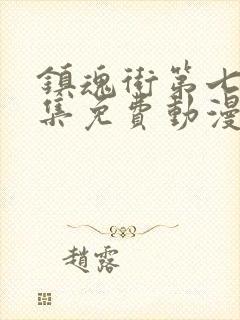 鎮魂街第七
集免費動漫
趙露